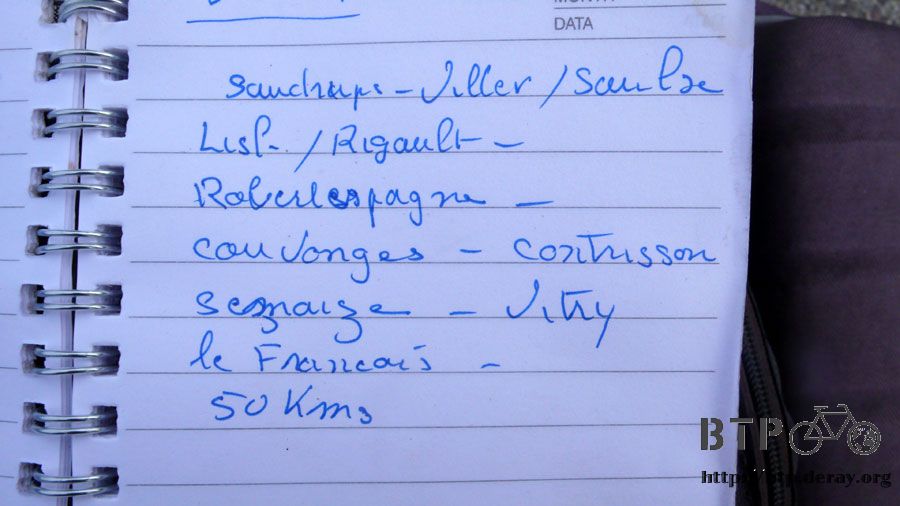 MONTH
DATA
Sauchrups - Viller / Saulxe
Lisl. / Rigault -
Robertespagne -
couvonges - contrisson
sermaize - Vitry
le Francais -
50 Kms
BTP
http://btp.deray.org